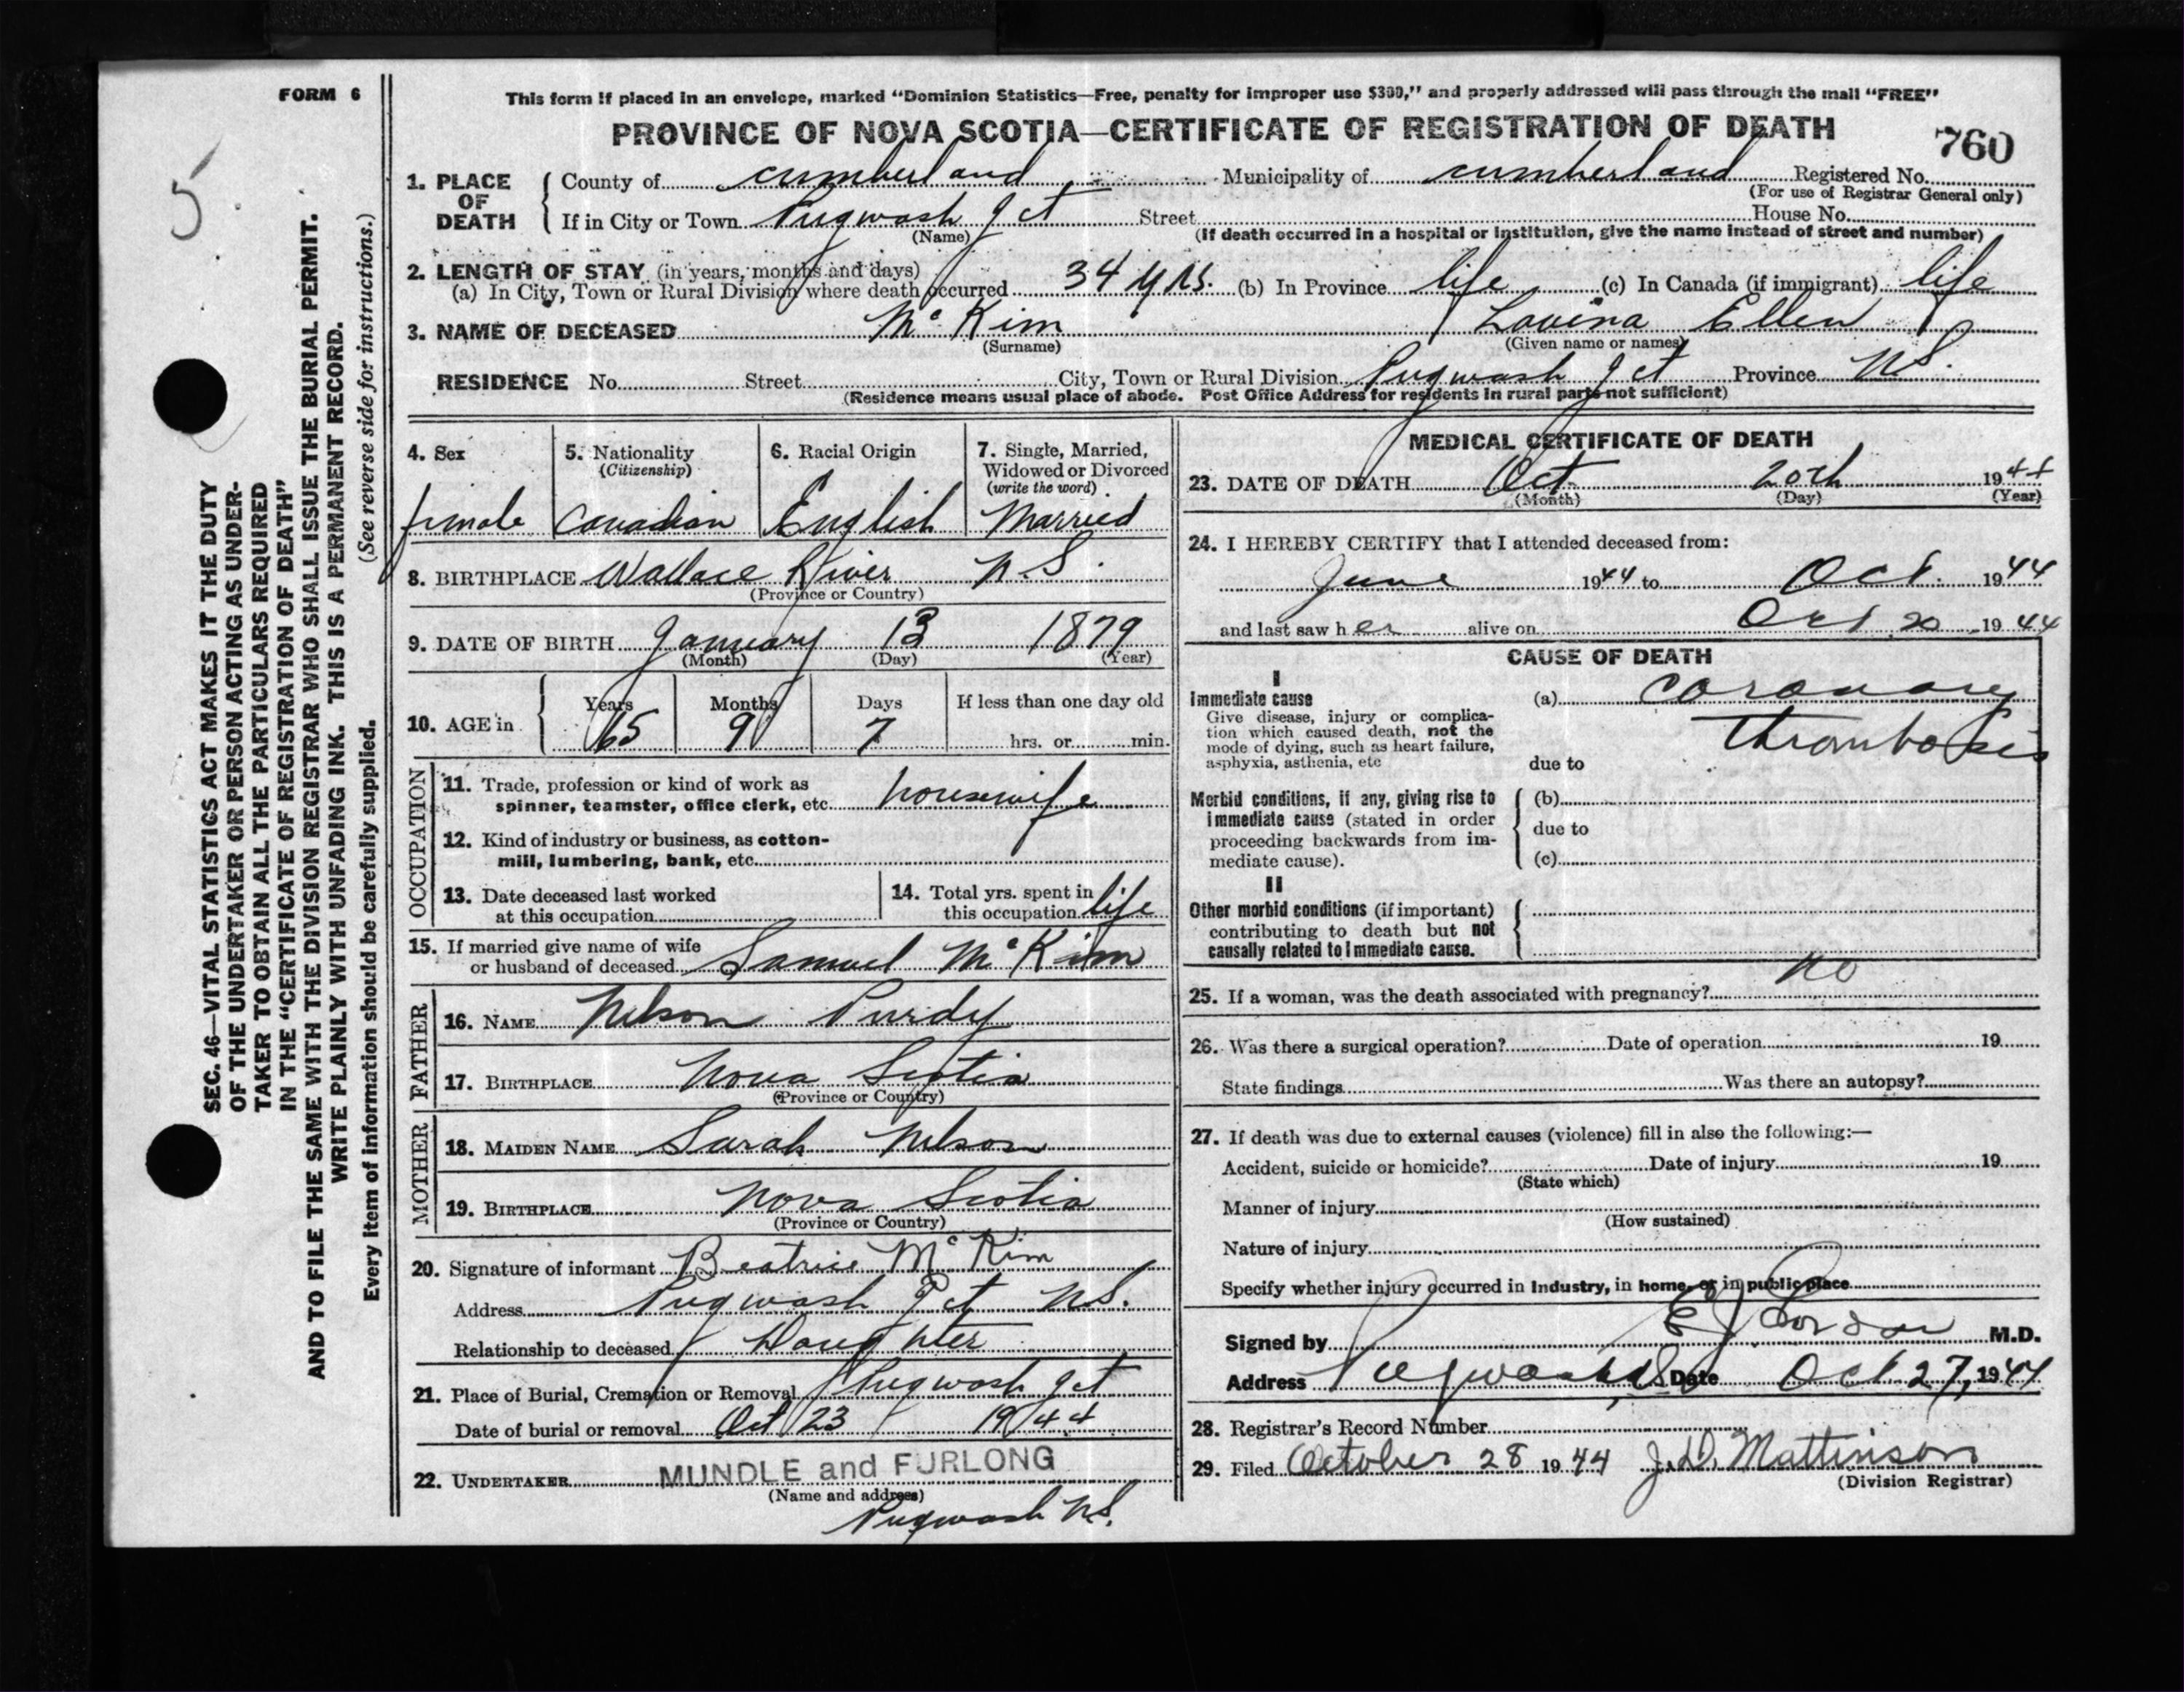 FORM 6
5
SEC. 46—VITAL STATISTICS ACT MAKES IT THE DUTY
OF THE UNDERTAKER OR PERSON ACTING AS UNDER-
TAKER TO OBTAIN ALL THE PARTICULARS REQUIRED
IN THE "CERTIFICATE OF REGISTRATION OF DEATH"
AND TO FILE THE SAME WITH THE DIVISION REGISTRAR WHO SHALL ISSUE THE BURIAL PERMIT.
WRITE PLAINLY WITH UNFADING INK. THIS IS A PERMANENT RECORD.
Every item of information should be carefully supplied. (See reverse side for instructions.)
This form if placed in an envelope, marked "Dominion Statistics—Free, penalty for improper use $300," and properly addressed will pass through the mail "FREE"
PROVINCE OF NOVA SCOTIA—CERTIFICATE OF REGISTRATION OF DEATH
760
1. PLACE OF DEATH County of cumberland Municipality of cumberland Registered No.
(For use of Registrar General only)
If in City or Town Pugwash Jct Street House No.
(Name) (If death occurred in a hospital or institution, give the name instead of street and number)
2. LENGTH OF STAY (in years, months and days)
(a) In City, Town or Rural Division where death occurred 34 yrs. (b) In Province life (c) In Canada (if immigrant) life
3. NAME OF DECEASED McKim Lavina Ellen
(Surname) (Given name or names)
RESIDENCE No. Street City, Town or Rural Division Pugwash Jct Province N.S.
(Residence means usual place of abode. Post Office Address for residents in rural parts not sufficient)
4. Sex
female
5. Nationality
(Citizenship)
Canadian
6. Racial Origin
English
7. Single, Married,
Widowed or Divorced
(write the word)
Married
8. BIRTHPLACE Wallace River N.S.
(Province or Country)
9. DATE OF BIRTH January 13 1879
(Month) (Day) (Year)
10. AGE in Years Months Days If less than one day old
65 9 7 hrs. or min.
OCCUPATION
11. Trade, profession or kind of work as
spinner, teamster, office clerk, etc. housewife
12. Kind of industry or business, as cotton-
mill, lumbering, bank, etc.
13. Date deceased last worked
at this occupation
14. Total yrs. spent in
this occupation life
15. If married give name of wife
or husband of deceased Samuel McKim
FATHER
16. NAME Nelson Purdy
17. BIRTHPLACE Nova Scotia
(Province or Country)
MOTHER
18. MAIDEN NAME Sarah Nelson
19. BIRTHPLACE Nova Scotia
(Province or Country)
20. Signature of informant Beatrice McKim
Address Pugwash Jct N.S.
Relationship to deceased Daughter
21. Place of Burial, Cremation or Removal Pugwash Jct
Date of burial or removal Oct 23 1944
22. UNDERTAKER MUNDLE and FURLONG
(Name and address)
Pugwash N.S.
MEDICAL CERTIFICATE OF DEATH
23. DATE OF DEATH Oct 20th 1944
(Month) (Day) (Year)
24. I HEREBY CERTIFY that I attended deceased from:
June 1944 to Oct. 1944
and last saw her alive on Oct 20 1944
CAUSE OF DEATH
I
Immediate cause
Give disease, injury or complica-
tion which caused death, not the
mode of dying, such as heart failure,
asphyxia, asthenia, etc
(a) coronary
Thrombosis
due to
Morbid conditions, if any, giving rise to
immediate cause (stated in order
proceeding backwards from im-
mediate cause).
(b)
due to
(c)
II
Other morbid conditions (if important)
contributing to death but not
causally related to immediate cause.
25. If a woman, was the death associated with pregnancy? no
26. Was there a surgical operation? Date of operation 19
State findings Was there an autopsy?
27. If death was due to external causes (violence) fill in also the following:—
Accident, suicide or homicide? Date of injury 19
(State which)
Manner of injury
(How sustained)
Nature of injury
Specify whether injury occurred in industry, in home, or in public place
Signed by M.D.
Address Pugwash, N.S. Date Oct 27, 1944
28. Registrar's Record Number
29. Filed October 28 1944 J.D. Mattinson
(Division Registrar)